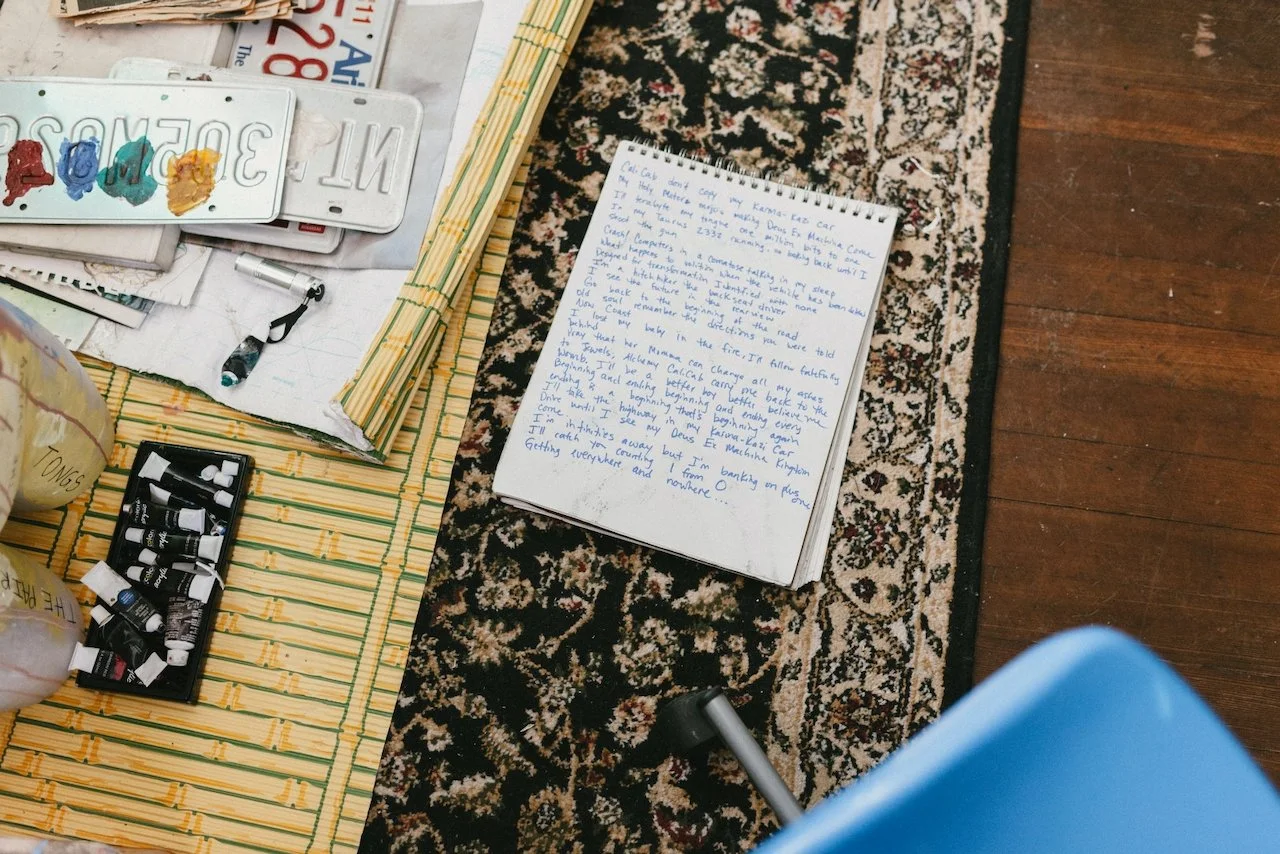 11
528
The
Ari
305M029
NT
TONGS
THE PAIR
Cali.Cab don't copy my Karma-Kazi car
My Holy Motors mojo's making Deus Ex Machina come
I'll terabyte my tongue one million bits to one
In my Taurus 2332 running, no looking back until I
shoot the gun
Crash! Computers in a comatose talking in my sleep
What happens to volition when the vehicle has been deleted
Designed for transformation Identified with none
I'm a hitchhiker the backseat driver
I see the future in the rearview
Go back to the beginning of the road
Old soul remember the directions you were told
Now Coast
I lost my baby in the fire, I'll follow fatefully
behind
Pray that her Momma can change all my ashes
to Jewels, Alchemy Cali.Cab carry me back to the
Womb, I'll be a better boy bettir believe me
Beginning and ending beginning and ending every
ending is a beginning that's beginning again
I'll take the highway in my Karma-Kazi Car
Drive until I see my Deus Ex Machina Kingdom
come.
I'm infinities away but I'm banking on plus one
I'll catch you counting 1 from 0
Getting everywhere and nowhere...